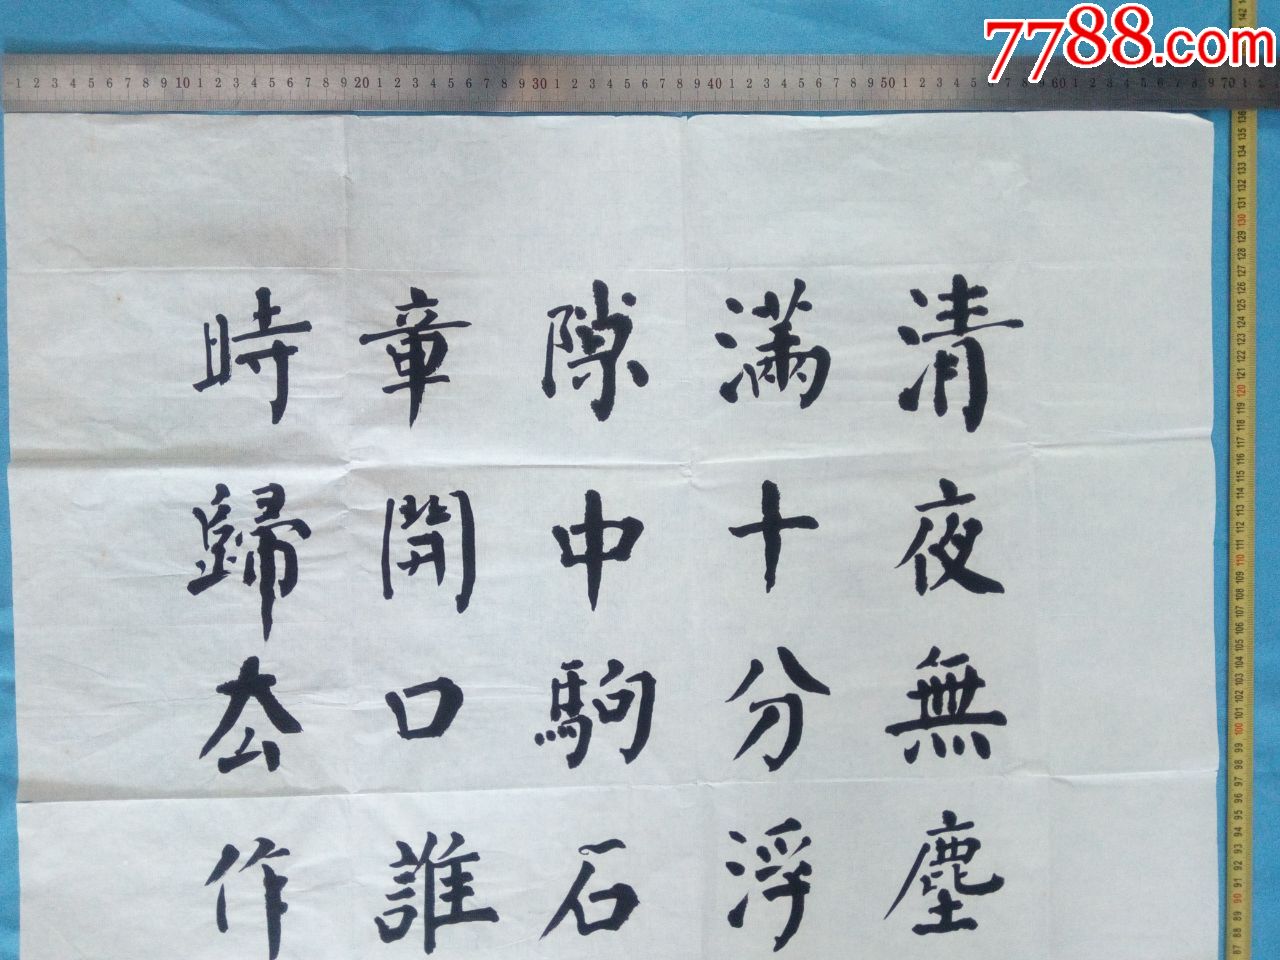 7788.com
清夜無塵
滿十分浮
隙中駒石
章開口誰
時歸去作